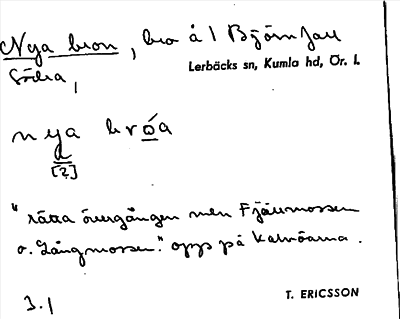 Nya bron, bro å 1 Björnfall
Södra,
Lerbäcks sn, Kumla hd, Ör. l.
nya bróa
[2]
"rätta övergången men Fjärmossen
o. Långmossen." opps på Kalvöarna.
3.1
T. ERICSSON